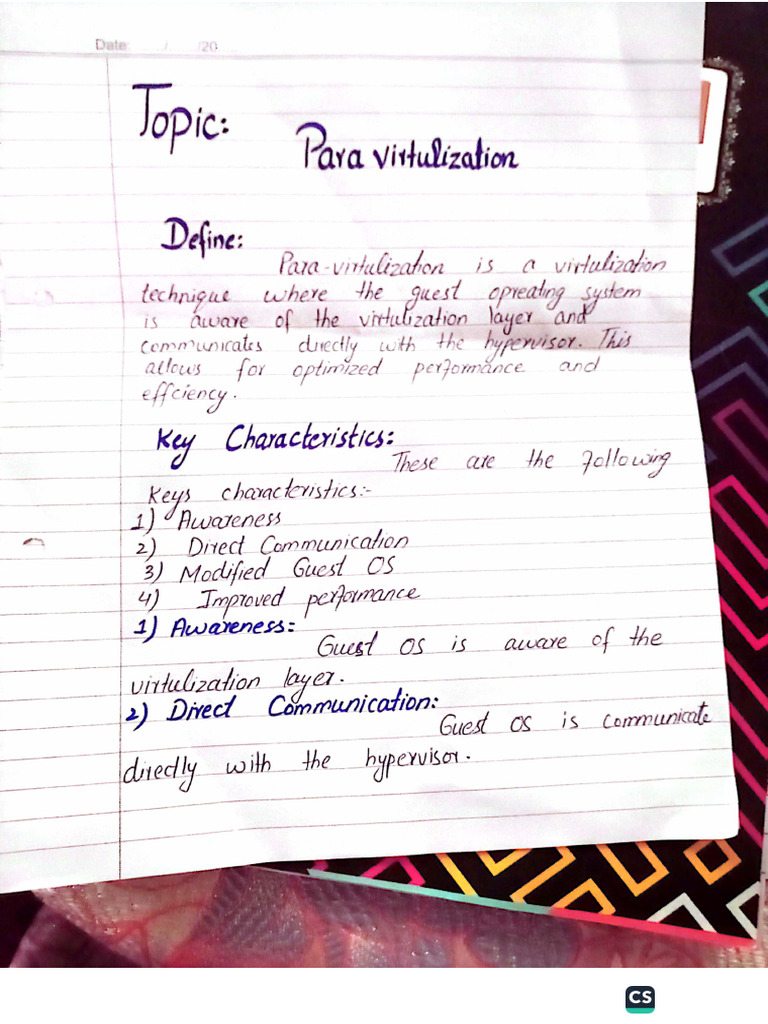 Date: ...../...../20
Topic:
Para virtulization
Define:
Para-virtulization is a virtulization
technique where the guest opreating system
is aware of the virtulization layer and
communicates directly with the hypervisor. This
allows for optimized performance and
effciency.
Key Characteristics:
These are the following
keys characteristics:-
1) Awareness
2) Direct Communication
3) Modified Guest OS
4) Improved performance
1) Awareness:
Guest OS is aware of the
virtulization layer.
2) Direct Communication:
Guest OS is communicate
directly with the hypervisor.
CS